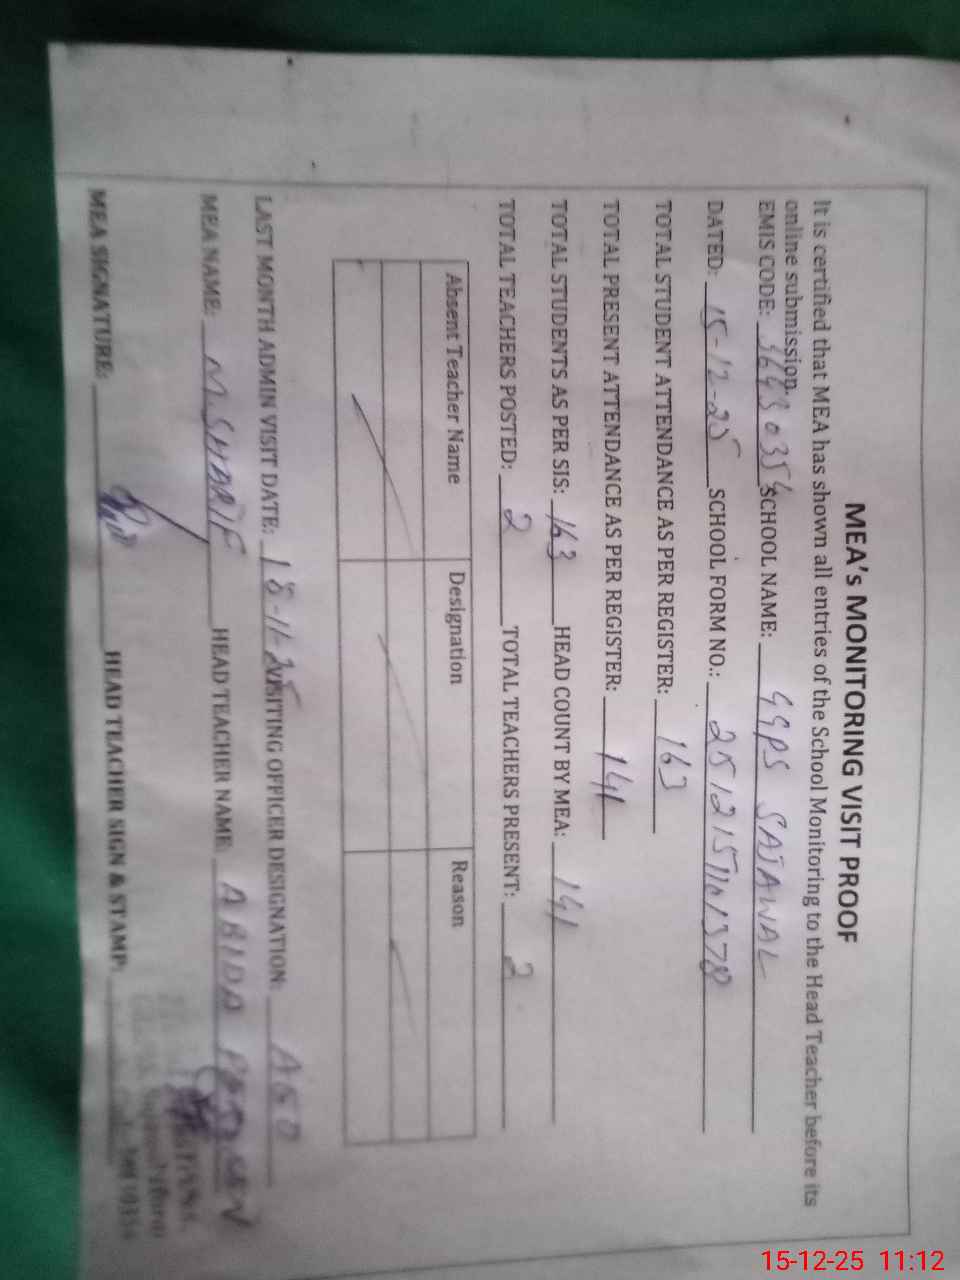 MEA's MONITORING VISIT PROOF
It is certified that MEA has shown all entries of the School Monitoring to the Head Teacher before its
online submission.
EMIS CODE: 36430354 SCHOOL NAME: GGPS SAJAWAL
DATED: 15-12-25 SCHOOL FORM NO.:
TOTAL STUDENT ATTENDANCE AS PER REGISTER: 163
TOTAL PRESENT ATTENDANCE AS PER REGISTER: 141
TOTAL STUDENTS AS PER SIS: 163 HEAD COUNT BY MEA: 141
TOTAL TEACHERS POSTED: 2 TOTAL TEACHERS PRESENT: 2
Absent Teacher Name Designation Reason
LAST MONTH ADMIN VISIT DATE: 18-11-25 VISITING OFFICER DESIGNATION: AEO
MEA NAME: M.SHARIF HEAD TEACHER NAME: ABIDA
MEA SIGNATURE: HEAD TEACHER SIGN & STAMP:
15-12-25 11:12